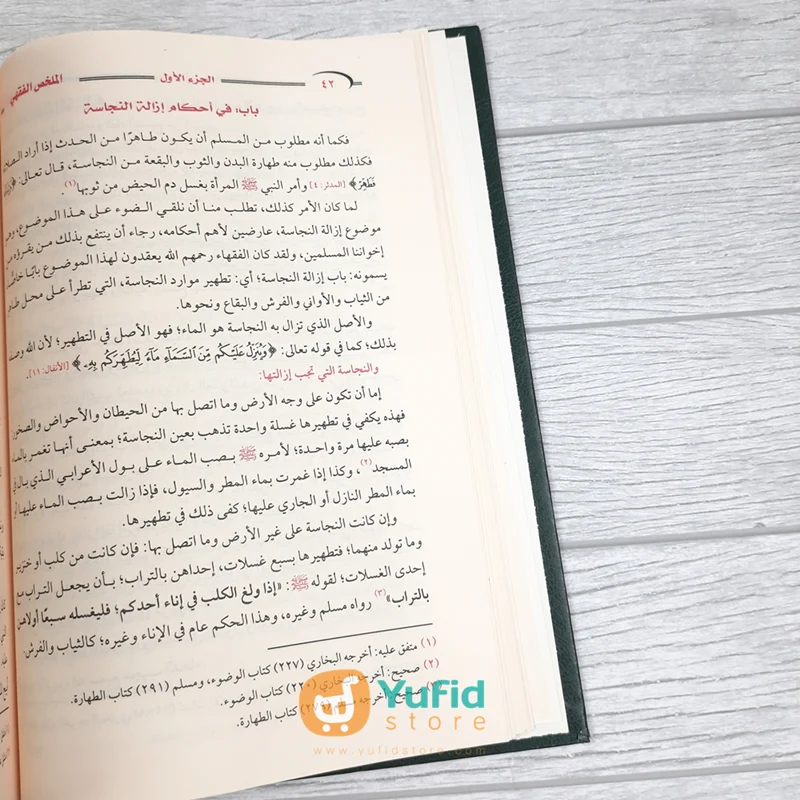 الملخص الفقهي الجزء الأول ٤٢
باب: في أحكام إزالة النجاسة
فكما أنه مطلوب من المسلم أن يكون طاهرًا من الحدث إذا أراد الصلاة
فكذلك مطلوب منه طهارة البدن والثوب والبقعة من النجاسة، قال تعالى:
فَطَهِّرْ﴾ [المدثر: ٤] وأمر النبي ﷺ المرأة بغسل دم الحيض من ثوبها(١).
لما كان الأمر كذلك، تطلب منا أن نلقي الضوء على هذا الموضوع،
موضوع إزالة النجاسة، عارضين لأهم أحكامه، رجاء أن ينتفع بذلك من يقرؤه من
إخواننا المسلمين، ولقد كان الفقهاء رحمهم الله يعقدون لهذا الموضوع بابًا
يسمونه: باب إزالة النجاسة؛ أي: تطهير موارد النجاسة، التي تطرأ على محل
من الثياب والأواني والفرش والبقاع ونحوها.
والأصل الذي تزال به النجاسة هو الماء؛ فهو الأصل في التطهير؛ لأن الله
بذلك؛ كما في قوله تعالى: ﴿وَيُنَزِّلُ عَلَيْكُم مِّنَ ٱلسَّمَآءِ مَآءً لِّيُطَهِّرَكُم بِهِۦ﴾ [الأنفال: ١١].
والنجاسة التي تجب إزالتها:
إما أن تكون على وجه الأرض وما اتصل بها من الحيطان والأحواض
فهذه يكفي في تطهيرها غسلة واحدة تذهب بعين النجاسة؛ بمعنى أنها تغمر
بصبه عليها مرة واحدة؛ لأمره ﷺ بصب الماء على بول الأعرابي الذي بال
المسجد(٢)، وكذا إذا غمرت بماء المطر والسيول، فإذا زالت بصب الماء عليها
بماء المطر النازل أو الجاري عليها؛ كفى ذلك في تطهيرها.
وإن كانت النجاسة على غير الأرض وما اتصل بها: فإن كانت من كلب أو خنزير
وما تولد منهما؛ فتطهيرها بسبع غسلات، إحداهن بالتراب؛ بأن يجعل التراب مع
إحدى الغسلات؛ لقوله ﷺ: «إذا ولغ الكلب في إناء أحدكم؛ فليغسله سبعًا أولاهن
بالتراب»(٣) رواه مسلم وغيره، وهذا الحكم عام في الإناء وغيره؛ كالثياب والفرش.
(١) متفق عليه: أخرجه البخاري (٢٢٧) كتاب الوضوء، ومسلم (٢٩١) كتاب الطهارة.
(٢) صحيح: أخرجه البخاري (٢٢٠) كتاب الوضوء.
صحيح: أخرجه كتاب الطهارة.
YuFid
store
www.yufidstore.com